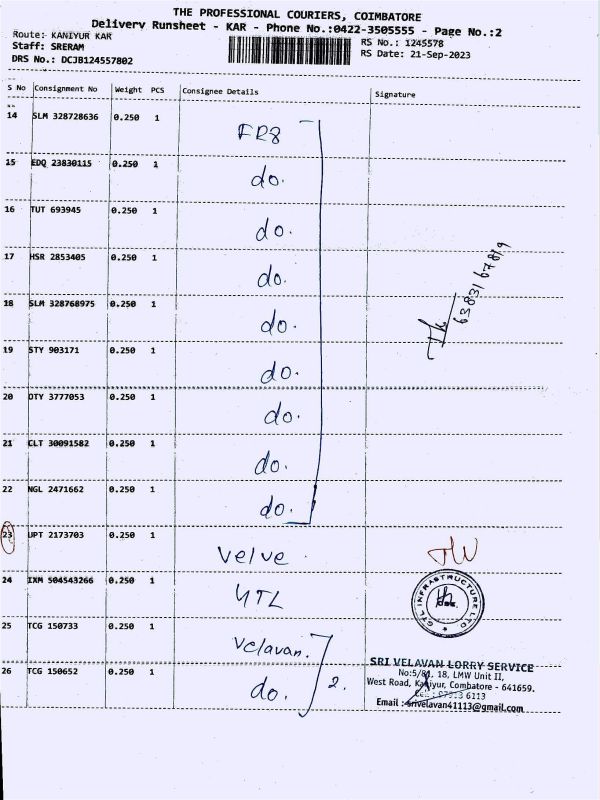 THE PROFESSIONAL COURIERS, COIMBATORE
Delivery Runsheet - KAR - Phone No.:0422-3505555 - Page No.:2
Route: KANIYUR KAR
Staff: SRERAM
DRS No.: DCJB124557802
RS No.: 1245578
RS Date: 21-Sep-2023
S No Consignment No Weight PCS Consignee Details Signature
14 SLM 328728636 0.250 1 FR8
15 EDQ 23830115 0.250 1 do.
16 TUT 693945 0.250 1 do.
17 HSR 2853405 0.250 1 do.
18 SLM 328768975 0.250 1 do.
19 STY 903171 0.250 1 do.
20 OTY 3777053 0.250 1 do.
21 CLT 30091582 0.250 1 do.
22 NGL 2471662 0.250 1 do.
6383167819
23 UPT 2173703 0.250 1 Velve
24 IXM 504543266 0.250 1
INFRASTRUCTURE LTD
25 TCG 150733 0.250 1 Velavan.
26 TCG 150652 0.250 1 do. 2.
SRI VELAVAN LORRY SERVICE
No:5/81, 18, LMW Unit II,
West Road, Kaniyur, Combatore - 641659.
Cell : 6113
Email : srivelavan41113@gmail.com